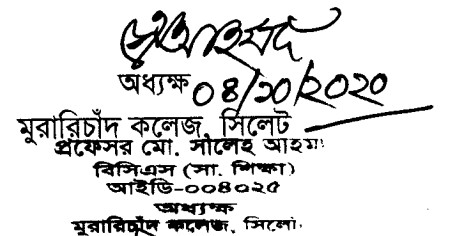 অধ্যক্ষ ০৪/১০/২০২০
মুরারিচাঁদ কলেজ, সিলেট
প্রফেসর মো. সালেহ আহম
বিসিএস (সা. শিক্ষা)
আইডি-০০৪০২৫
অধ্যক্ষ
মুরারিচাঁদ কলেজ, সিলে